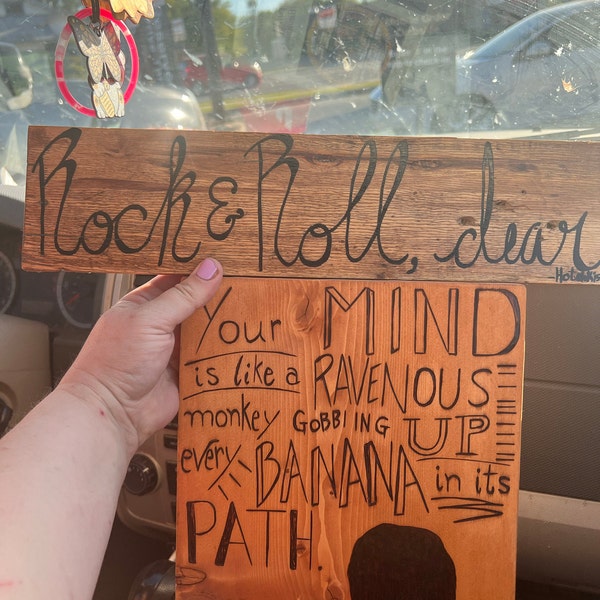 Rock & Roll, dear
Your MIND
is like a RAVENOUS
monkey GOBBLING UP
every BANANA in its
PATH.